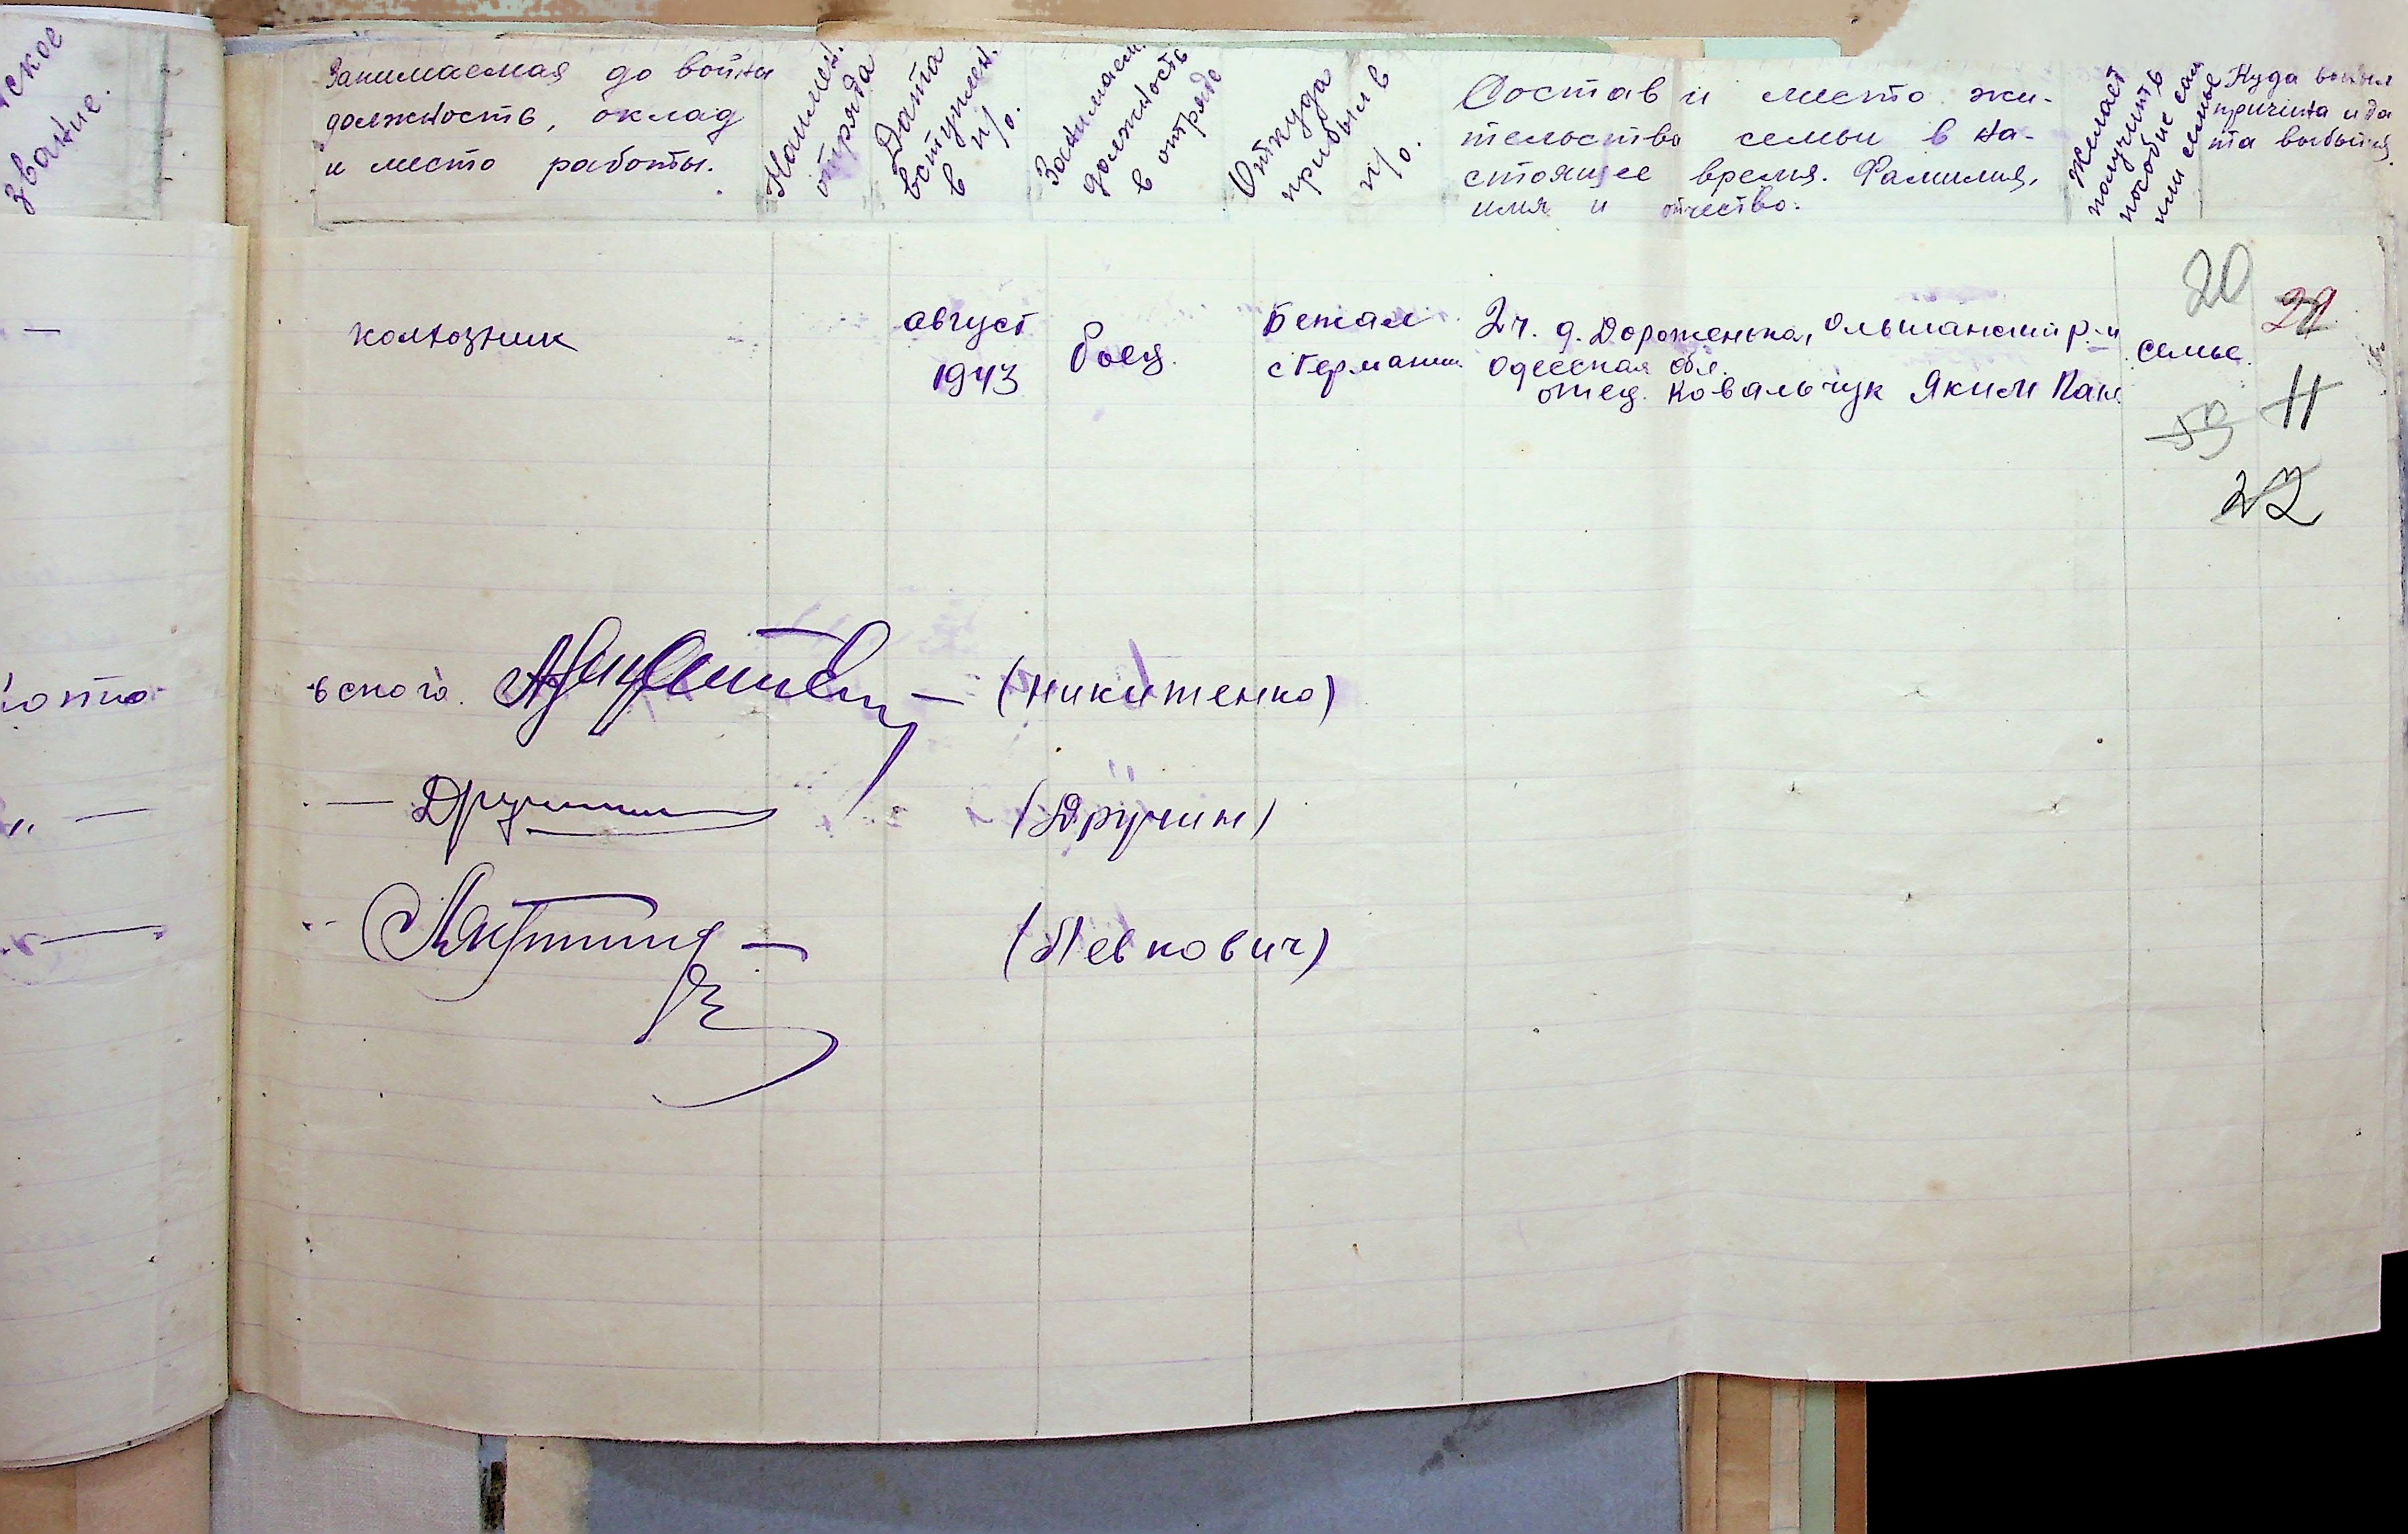 ское
звание.
Занимаемая до войны
должность, оклад
и место работы.
Наимен.
отряда
Дата
вступлен.
в п/о.
Занимаем.
должность
в отряде
Откуда
прибыл в
п/о.
Состав и место жи-
тельства семьи в на-
стоящее время. Фамилия,
имя и отчество.
Желает
получить
пособие сам
или семье
Куда выбыл
причина и да
та выбытия
—
колхозник
август
1943
боец.
Бежал
с Германии
2ч. д. Дороженька, Ольшанский р-н
Одесская обл.
отец. Ковальчук Яким Пан.
семье.
20
29
11
59
22
вского. — (Никитенко)
— Дручин (Дручин)
— (Левкович)